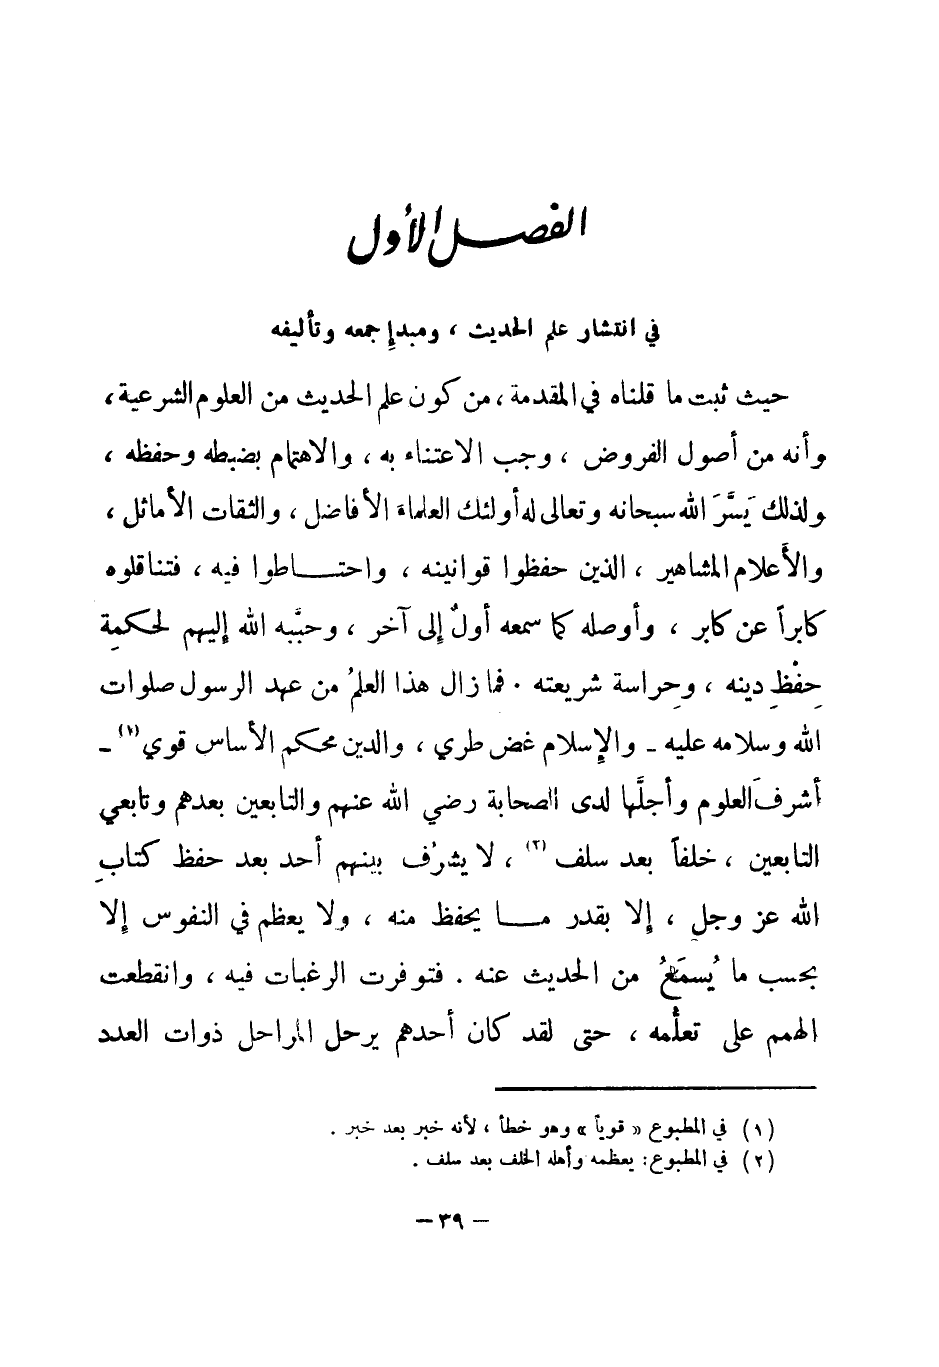 الفصل الأول
في انتشار علم الحديث ، ومبدإ جمعه وتأليفه
حيث ثبت ما قلناه في المقدمة ، من كون علم الحديث من العلوم الشرعية ،
وأنه من أصول الفروض ، وجب الاعتناء به ، والاهتمام بضبطه وحفظه ،
ولذلك يَسَّرَ الله سبحانه وتعالى له أولئك العلماء الأفاضل ، والثقات الأماثل ،
والأعلام المشاهير ، الذين حفظوا قوانينه ، واحتاطوا فيه ، فتناقلوه
كابراً عن كابر ، وأوصله كما سمعه أولٌ إلى آخر ، وحبَّبه الله إليهم لحكمةِ
حِفْظِ دينه ، وحِراسة شريعته . فما زال هذا العلمُ من عهد الرسول صلوات
الله وسلامه عليه - والإسلام غض طري ، والدين محكم الأساس قوي (١) -
أشرفَ العلوم وأجلَّها لدى الصحابة رضي الله عنهم والتابعين بعدهم وتابعي
التابعين ، خلفاً بعد سلف (٢) ، لا يشرُف بينهم أحد بعد حفظ كتابِ
الله عز وجل ، إلا بقدر ما يحفظ منه ، ولا يعظم في النفوس إلا
بحسب ما يُسمَعُ من الحديث عنه . فتوفرت الرغبات فيه ، وانقطعت
الهمم على تعلُّمه ، حتى لقد كان أحدهم يرحل المراحل ذوات العدد
(١) في المطبوع « قوياً » وهو خطأ ، لأنه خبر بعد خبر .
(٢) في المطبوع : يعظمه وأهله الخلف بعد سلف .
- ٣٩ -